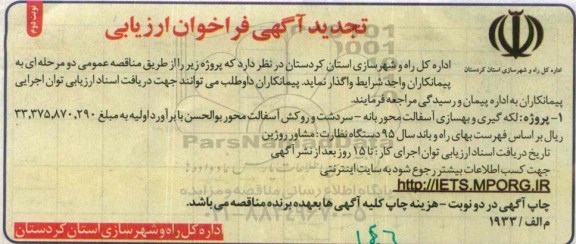 نوبت دوم
تجدید آگهی فراخوان ارزیابی
اداره کل راه و شهرسازی استان کردستان
اداره کل راه و شهرسازی استان کردستان در نظر دارد که پروژه زیر را از طریق مناقصه عمومی دو مرحله ای به
پیمانکاران واجد شرایط واگذار نماید. پیمانکاران داوطلب می توانند جهت دریافت اسناد ارزیابی توان اجرایی
پیمانکاران به اداره پیمان و رسیدگی مراجعه فرمایند.
۱- پروژه: لکه گیری و بهسازی آسفالت محور بانه - سردشت و روکش آسفالت محور بوالحسن با برآورد اولیه به مبلغ ۳۳,۳۷۵,۸۷۰,۲۹۰
ریال بر اساس فهرست بهای راه و باند سال ۹۵ دستگاه نظارت: مشاور روژین
تاریخ دریافت اسناد ارزیابی توان اجرای کار: تا ۱۵ روز بعد از نشر آگهی
جهت کسب اطلاعات بیشتر رجوع شود به سایت اینترنتی
http://IETS.MPORG.IR
چاپ آگهی در دو نوبت - هزینه چاپ کلیه آگهی ها بعهده برنده مناقصه می باشد.
م الف / ۱۹۳۳
اداره کل راه و شهرسازی استان کردستان
ParsNamadData
پایگاه اطلاع رسانی مناقصه و مزایده